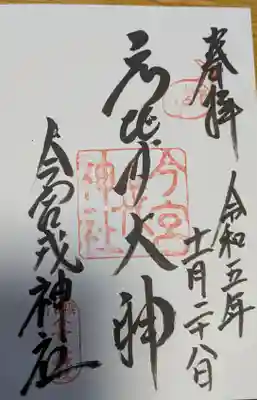 奉拝
令和五年
十一月二十八日
えびす大神
今宮戎神社
今宮戎神社